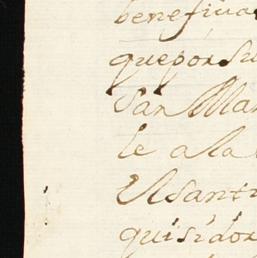 benefiua
que por su
San Man
le a la
El santi
quisidor